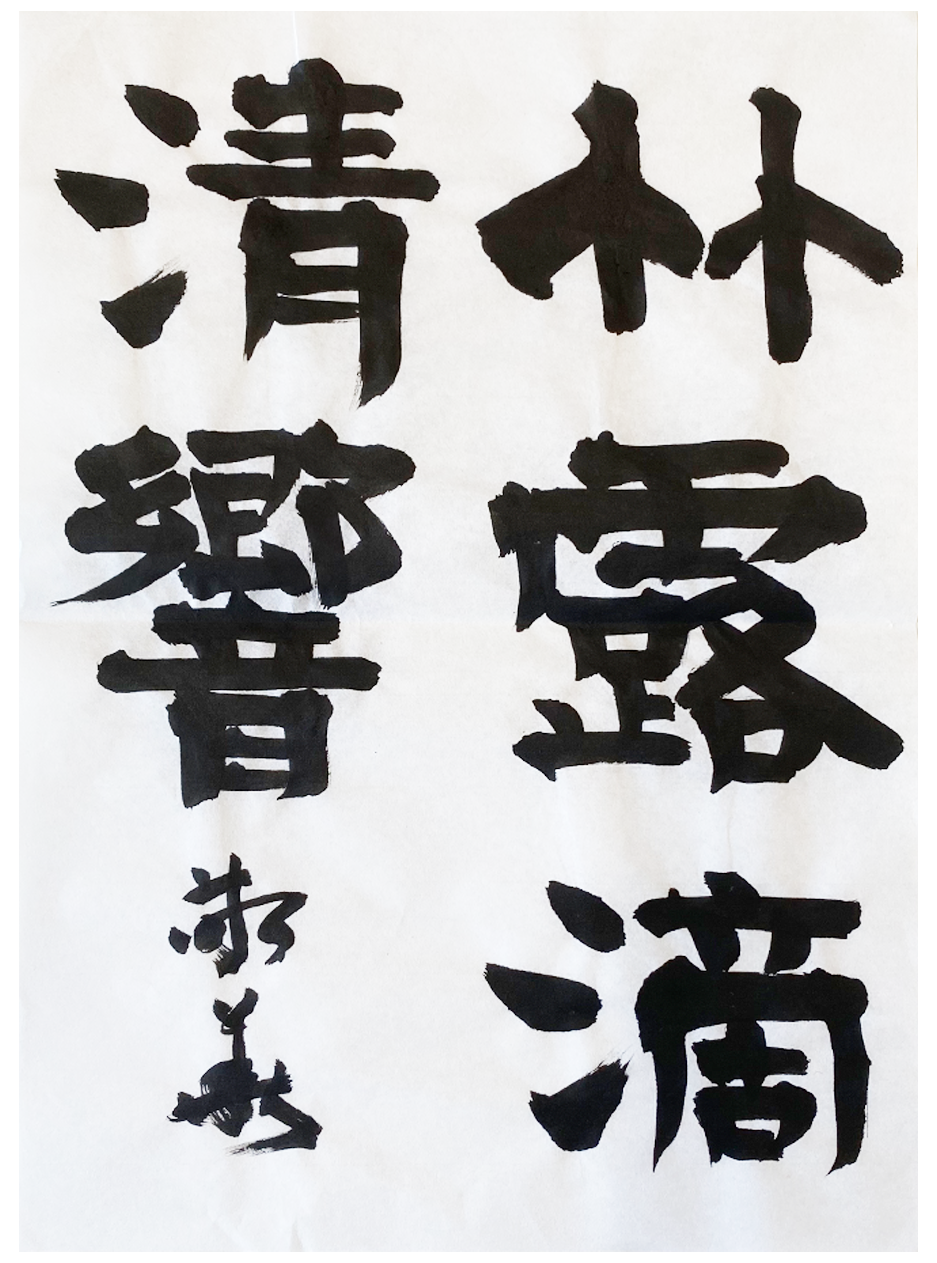 竹露滴
清響